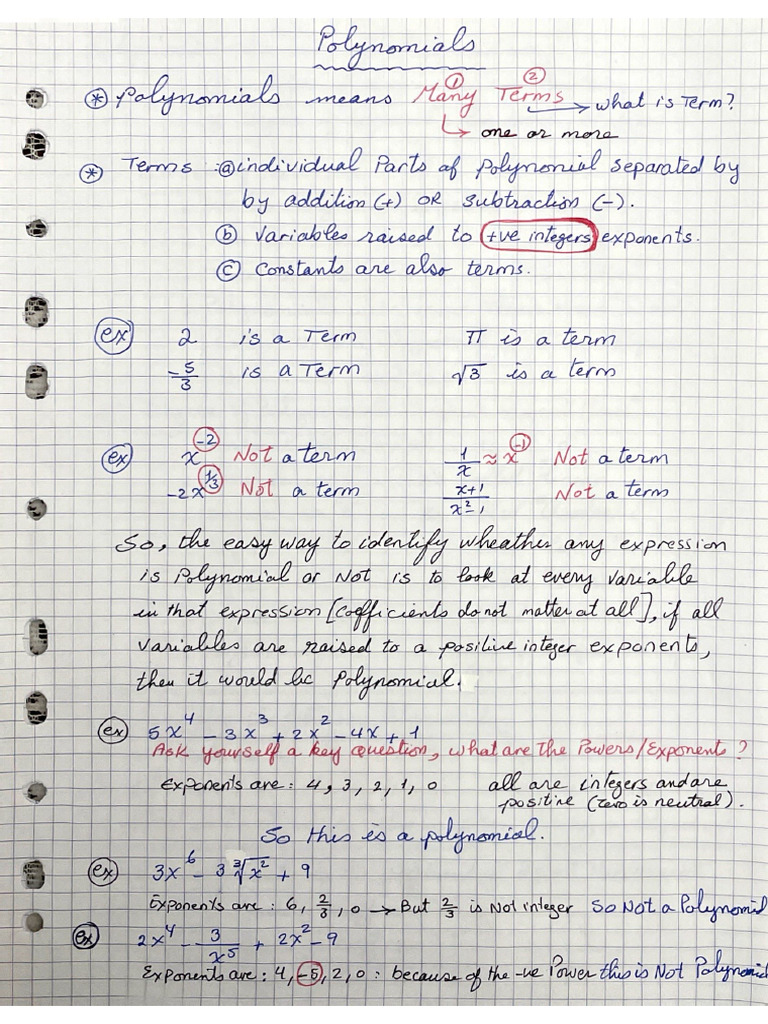 Polynomials
⊛ Polynomials means Many ① Terms ② → what is Term?
↳ one or more
⊛ Terms : ⓐ individual Parts of Polynomial separated by
by addition (+) OR subtraction (-).
ⓑ Variables raised to +ve integers exponents.
ⓒ Constants are also terms.
ex 2 is a Term π is a term
-5/3 is a Term √3 is a term
ex x^-2 Not a term 1/x ≈ x^-1 Not a term
-2x^1/3 Not a term x+1/x²-1 Not a term
So, the easy way to identify wheather any expression
is Polynomial or Not is to look at every variable
in that expression [Coefficients do not matter at all], if all
variables are raised to a positive integer exponents,
then it would be Polynomial.
ex 5x⁴ - 3x³ + 2x² - 4x + 1
Ask yourself a key question, what are the Powers/Exponents?
Exponents are: 4, 3, 2, 1, 0 all are integers and are
positive (zero is neutral).
So this is a polynomial.
ex 3x⁶ - 3 ∛x² + 9
Exponents are : 6, 2/3, 0 → But 2/3 is Not integer So Not a Polynomial
ex 2x⁴ - 3/x⁵ + 2x² - 9
Exponents are: 4, -5, 2, 0 : because of the -ve Power this is Not Polynomial